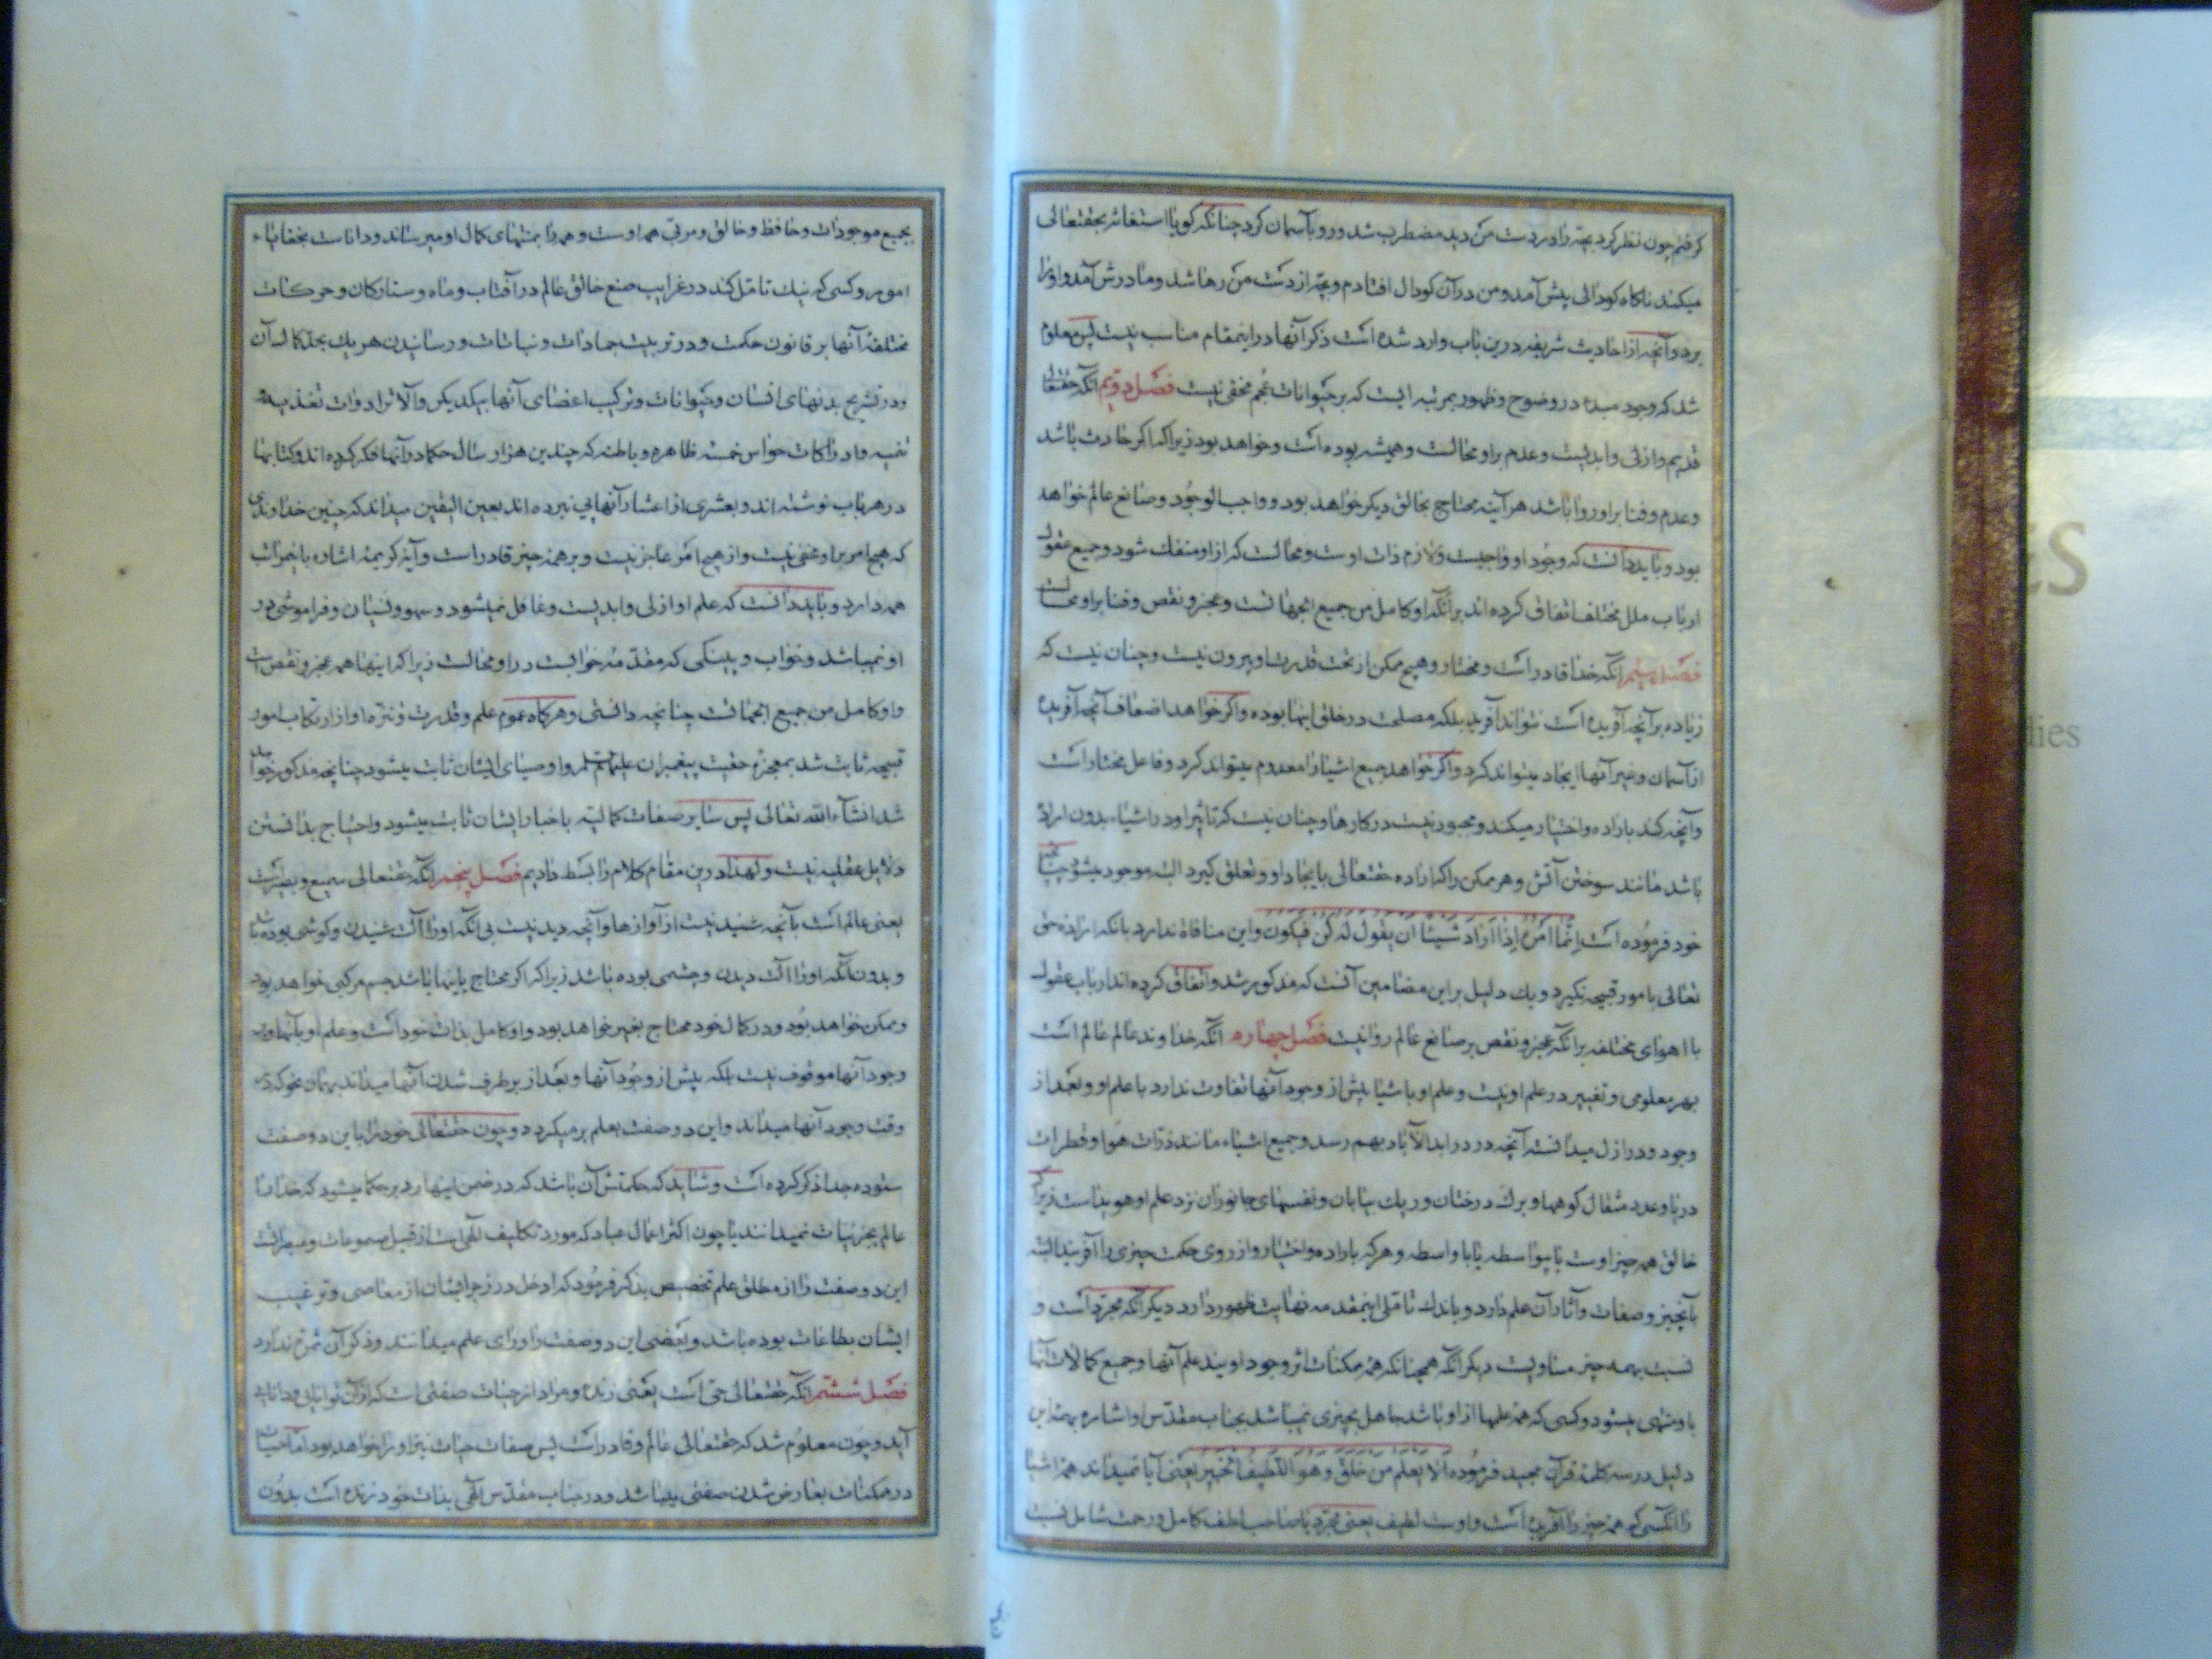 کرفتم چون نظر کرد بچه را در دست من دید مضطرب شد و رو بآسمان کرد چنانکه کویا استغاثه بحقتعالی
میکند ناکاه کودالی پیش آمد و من در آن کودال افتادم و بچه از دست من رها شد و مادرش آمد و او را
برد و آنچه از احادیث شریفه درین باب وارد شده است ذکر آنها در اینمقام مناسب نیست پس معلوم
شد که وجود مبدء در وضوح و ظهور بمرتبه ایست که بر حیوانات عجم مخفی نیست فصل دویم انکه حقتعالی
قدیم و ازلی و ابدیست و عدم بر او محالست و همیشه بوده است و خواهد بود زیرا که اکر حادث باشد
و عدم و فنا بر او روا باشد هر آینه محتاج بخالق دیکر خواهد بود و واجب الوجود و صانع عالم نخواهد
بود و باید دانست که وجود او واجبست و لازم ذات اوست و محالست که از او منفک شود و جمیع عقول
ارباب ملل مختلفه اتفاق کرده اند بر آنکه او کامل من جمیع الجهاتست و عجز و نقص و فنا بر او محالست
فصل سیم انکه خدا قادر است و مختار و هیچ ممکن از تحت قدرت او بیرون نیست و چنان نیست که
زیاده بر آنچه آفریده است نتواند آفرید بلکه مصلحت در خلق اینها بوده و اکر خواهد اضعاف آنچه آفریده
از آسمان و غیر آنها ایجاد میتواند کرد و اکر خواهد جمیع اشیا را معدوم میتواند کرد و فاعل مختار است
و آنچه کند باراده و اختیار میکند و مجبور نیست در کارها و چنان نیست که تاثیر او در اشیاء بدون اراده
باشد مانند سوختن آتش و هر ممکن را که اراده حقتعالی بایجاد او تعلق کیرد البته موجود میشود چنانچه
خود فرموده است انما امره اذا اراد شیئا ان یقول له کن فیکون و این منافاة ندارد بانکه اراده حق
تعالی بامور قبیحه نکیرد و یک دلیل بر این مضامین آنست که مذکور شد و اتفاق کرده اند ارباب عقول
با اهوای مختلفه بر آنکه عجز و نقص بر صانع عالم روا نیست فصل چهارم انکه خداوند عالم عالم است
بهر معلومی و تغییر در علم او نیست و علم او باشیا پیش از وجود آنها تفاوت ندارد با علم او و بعد از
وجود و در ازل میدانسته آنچه در ابد الآباد بهم رسد و جمیع اشیاء مانند ذرات هوا و قطرات
دریا و عدد مثقال کوهها و برک درختان و ریک بیابان و نفسهای جانوران نزد علم او هویداست زیرا که
خالق همه چیز اوست یا بیواسطه یا با واسطه و هر که باراده و اختیار و از روی حکمت چیزی را آفریند البته
بآنچیز و صفات و آثار آن علم دارد و باندک تاملی اینمقدمه نهایت ظهور دارد دیکر آنکه مجرد است و
نسبت بهمه چیز مساویست دیکر آنکه همچنانکه همه ممکنات اثر وجود اویند علم آنها و جمیع کمالات آنها
باو منتهی میشود و کسی که همه علمها از او باشد جاهل بچیزی نمیباشد بجناب مقدس او اشاره بهمه این
دلیل در سه کلمه قرآن مجید فرموده الا یعلم من خلق و هو اللطیف الخبیر یعنی آیا نمیداند همه اشیا
را آنکسی که همه چیز را آفریده است و اوست لطیف یعنی مجرد یا صاحب لطف کامل و رحمت شامل نسبت
بجمیع موجودات و حافظ و خالق و مربی همه اوست و همه را بمنتهای کمال او میرساند و داناست بخفایای
امور و کسی که نیک تامل کند در غرایب صنع خالق عالم در آفتاب و ماه و ستارکان و حرکات
مختلفه آنها بر قانون حکمت و در تربیت جمادات و نباتات و رسانیدن هر یک بحد کمال آن
و در تشریح بدنهای انسان و حیوانات و ترکیب اعضای آنها بیکدیکر و آلات و ادوات تغذیه و
تنمیه و ادراکات حواس خمسه ظاهره و باطنه که چندین هزار سال حکما در آنها فکر کرده اند و کتابها
در هر باب نوشته اند و بعشری از اعشار آنها پی نبرده اند بعین الیقین میداند که چنین خداوندی
که هیچ امر بر او مخفی نیست و از هیچ امر عاجز نیست و بر همه چیز قادر است و آیه کریمه اشاره باینمراتب
همه دارد و باید دانست که علم او ازلی و ابدیست و غافل نمیشود و سهو و نسیان و فراموشی در
او نمیباشد و خواب و پینکی که مقدمه خوابست در او محالست زیرا که اینها همه عجز و نقص است
و او کامل من جمیع الجهاتست چنانچه دانستی و هرکاه عموم علم و قدرت و تنزه او از ارتکاب امور
قبیحه ثابت شد بمعجزه حقیت پیغمبران علیهم السلم و اوصیای ایشان ثابت میشود چنانچه مذکور خواهد
شد انشاء الله تعالی پس سایر صفات کمالیه باخبار ایشان ثابت میشود و احتیاج بدانستن
دلایل عقلیه نیست و لهذا درین مقام کلام را بسط ندادیم فصل پنجم انکه حقتعالی سمیع و بصیر است
یعنی عالم است بآنچه شنیدنیست از آوازها و آنچه دیدنیست بی آنکه او را آلت شنیدن و کوشی بوده باشد
و بدون آنکه او را آلت دیدن و چشمی بوده باشد زیرا که اکر محتاج باینها باشد جسم مرکبی خواهد بود
و ممکن خواهد بود و در کمال خود محتاج بغیر خواهد بود و او کامل بذات خود است و علم او بآنها در
وجود آنها موقوف نیست بلکه پیش از وجود آنها و بعد از بر طرف شدن آنها میداند بهمان نحو که در
وقت وجود آنها میداند و این دو صفت بعلم بر میکردد و چون حقتعالی خود را باین دو صفت
ستوده جدا ذکر کرده است و شاید که حکمتش آن باشد که در ضمن اینها رد بر حکما میشود که خدا را
عالم بجزئیات نمیدانند یا چون اکثر اعمال عباد که مورد تکالیف الهی است از قبیل مسموعات و مبصرات
این دو صفت را از مطلق علم تخصیص بذکر فرمود که ادخل در زجر ایشان از معاصی و ترغیب
ایشان بطاعات بوده باشد و بعضی این دو صفت را ورای علم میدانند و ذکر آن ثمری ندارد
فصل ششم انکه حقتعالی حی است یعنی زنده و مراد از حیات صفتی است که از آن توانایی و دانایی
آید و چون معلوم شد که حقتعالی عالم و قادر است پس صفات حیات نیز او را خواهد بود اما حیات
در ممکنات بعارض شدن صفتی میباشد و در جناب مقدس الهی بذات خود زنده است بدون